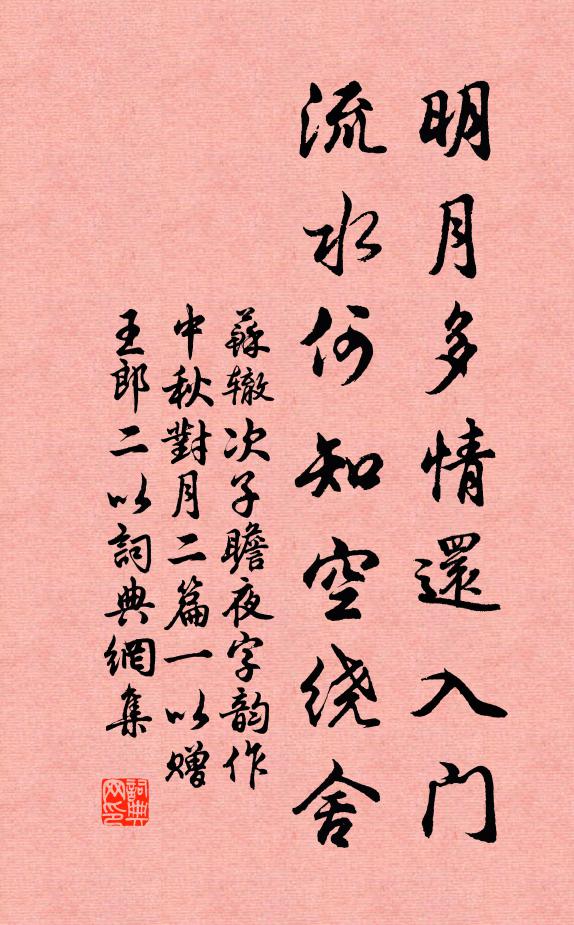 明月多情還入门
流水何知空绕舍
蘇辙次子瞻夜字韵作
中秋對月二篇一以赠
王郎二以詞典網集
詞典
网印